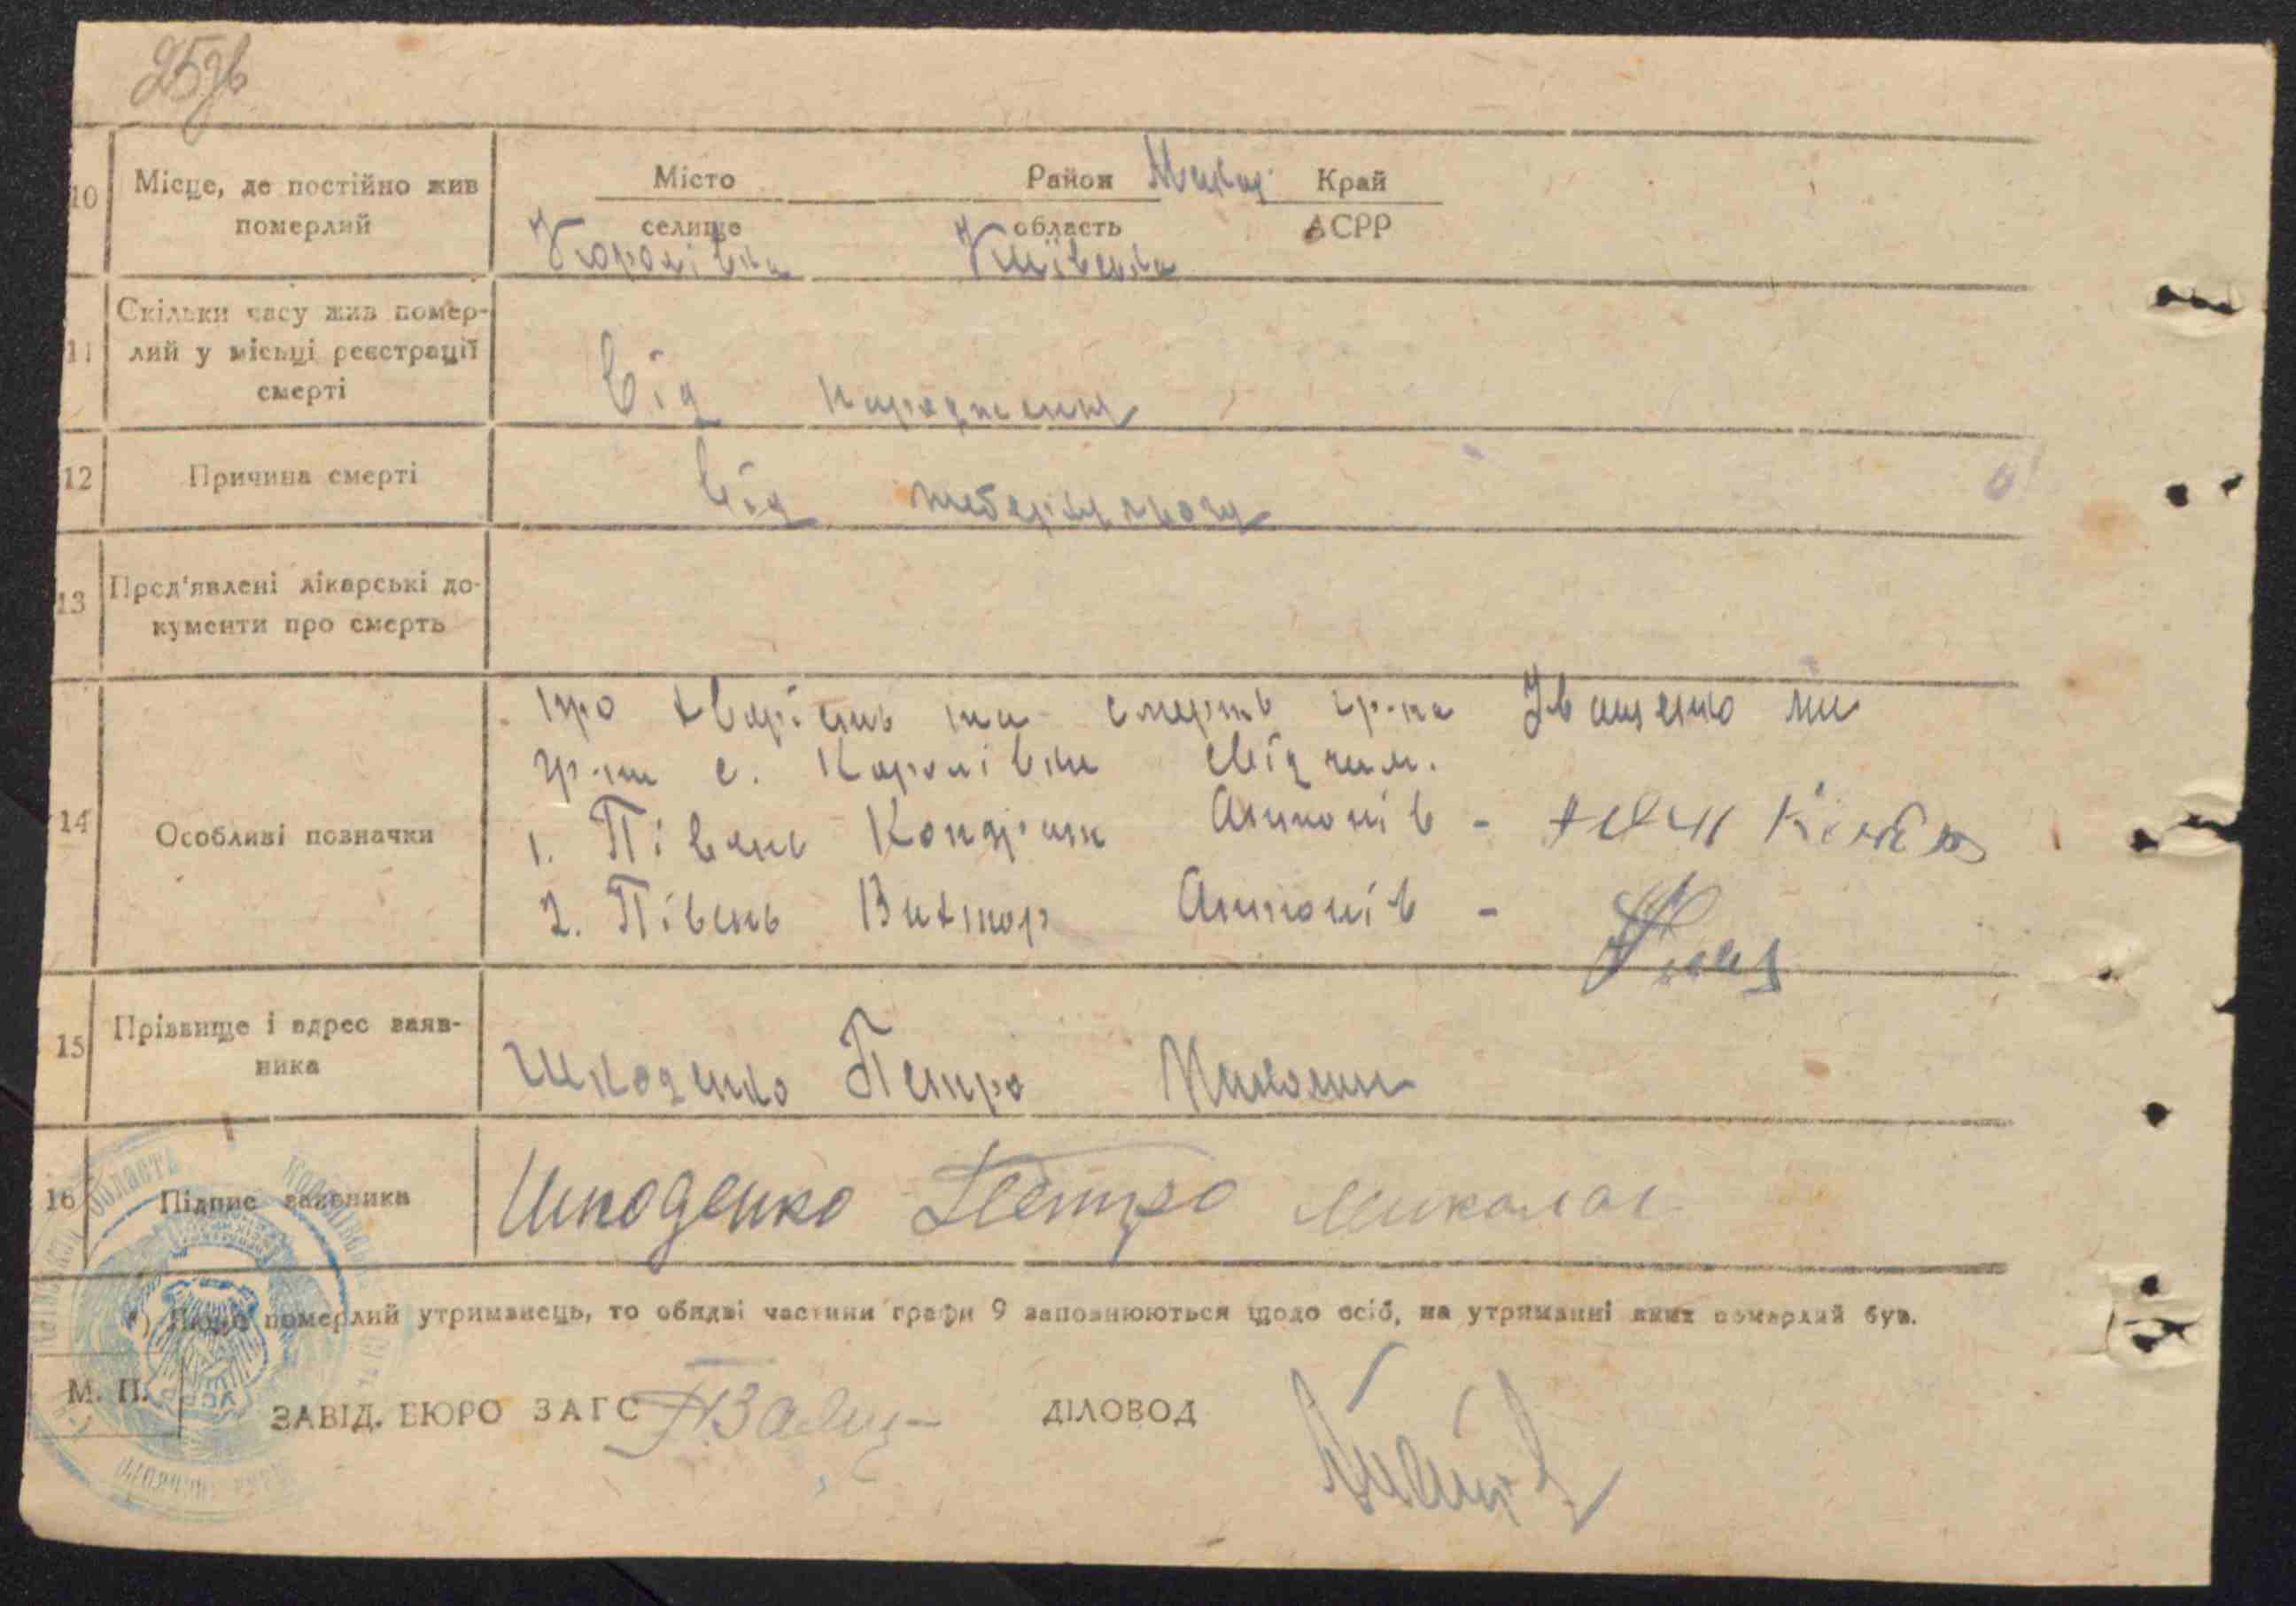 25зв
10 Місце, де постійно жив
померлий
Місто Район Край
селище область АСРР
Королівка Київська
11 Скільки часу жив помер-
лий у місьці реєстрації
смерті
Від народження
12 Причина смерті
Від туберкульозу
13 Пред'явлені лікарські до-
кументи про смерть
14 Особливі позначки
про хварість та смерть гр-на Іващенко ми
гр-ни с. Королівки свідчим.
1. Півень Кондрат Антонів -
2. Півень Виктор Антонів -
15 Прізвище і адрес заяв-
ника
Шкоденко Петро Миколаи
16 Підпис заявника
Шкоденко Петро Миколаи
*) Якщо померлий утриманець, то обидві частини графи 9 заповнюються щодо осіб, на утриманні яких померлий був.
М. П.
ЗАВІД. БЮРО ЗАГС ДІЛОВОД